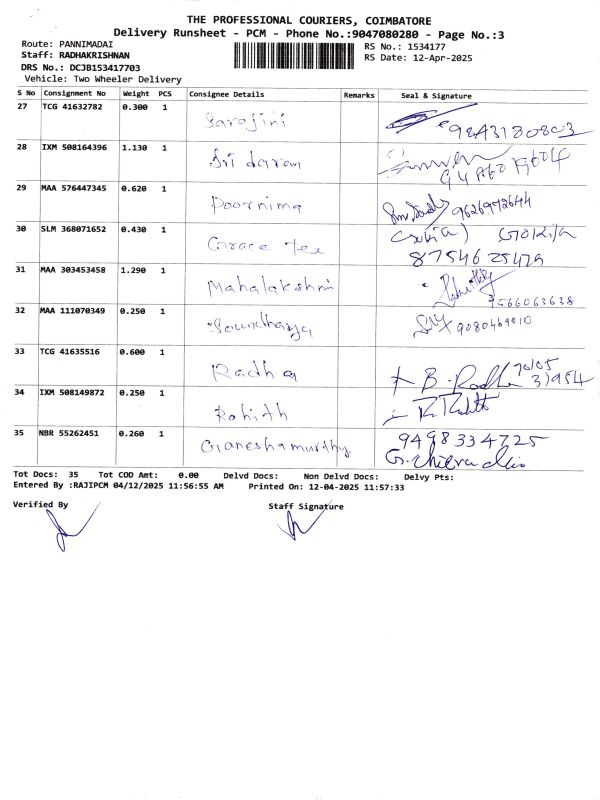 THE PROFESSIONAL COURIERS, COIMBATORE
Delivery Runsheet - PCM - Phone No.:9047080280 - Page No.:3
Route: PANNIMADAI RS No.: 1534177
Staff: RADHAKRISHNAN RS Date: 12-Apr-2025
DRS No.: DCJB153417703
Vehicle: Two Wheeler Delivery
S No Consignment No Weight PCS Consignee Details Remarks Seal & Signature
27 TCG 41632782 0.300 1 Sarojini 9843180803
28 IXM 508164396 1.130 1 Sri daran
29 MAA 576447345 0.620 1 Poornima 9626972644
30 SLM 368071652 0.430 1 Grace tex
8754625479
31 MAA 303453458 1.290 1 Mahalakshmi 9566063638
32 MAA 111070349 0.250 1 Soundhaya 9080469910
33 TCG 41635516 0.600 1 Radha B. Radha
34 IXM 508149872 0.250 1 Rohith
35 NBR 55262451 0.260 1 Ganeshamurthy 9498334725
Tot Docs: 35 Tot COD Amt: 0.00 Delvd Docs: Non Delvd Docs: Delvy Pts:
Entered By :RAJIPCM 04/12/2025 11:56:55 AM Printed On: 12-04-2025 11:57:33
Verified By Staff Signature